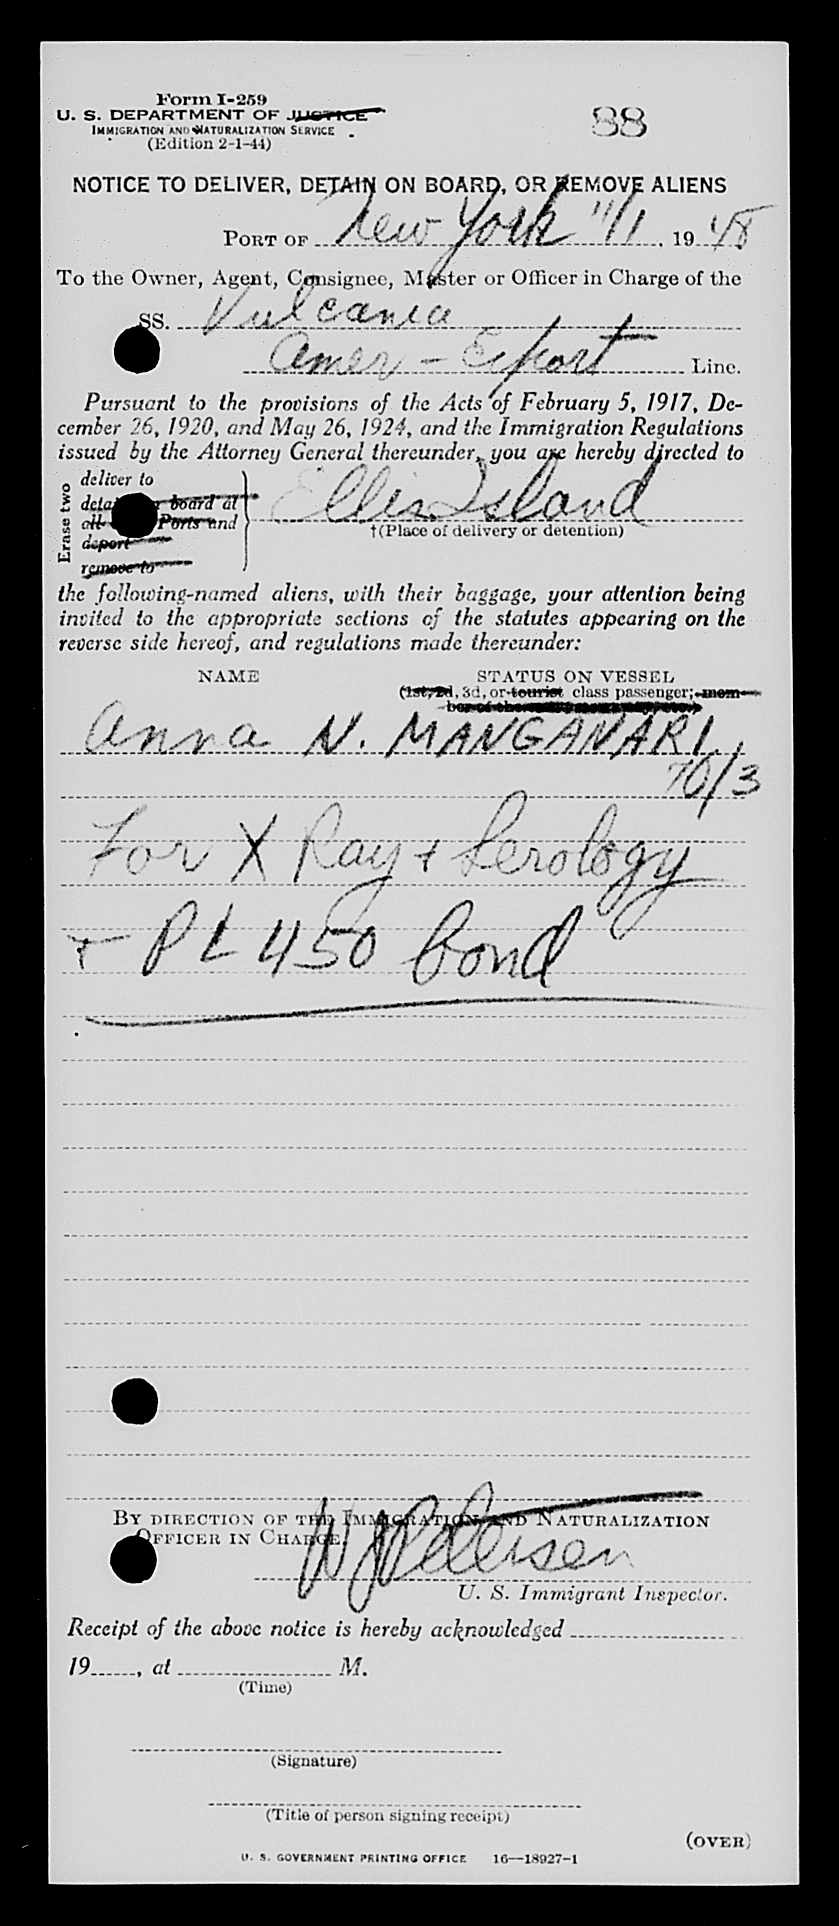 Form I-259
U. S. DEPARTMENT OF JUSTICE
IMMIGRATION AND NATURALIZATION SERVICE
(Edition 2-1-44)
88
NOTICE TO DELIVER, DETAIN ON BOARD, OR REMOVE ALIENS
PORT OF New York 11/1, 1948
To the Owner, Agent, Consignee, Master or Officer in Charge of the
SS. Vulcania
Amer - Export Line.
Pursuant to the provisions of the Acts of February 5, 1917, De-
cember 26, 1920, and May 26, 1924, and the Immigration Regulations
issued by the Attorney General thereunder, you are hereby directed to
Erase two
deliver to
board at
all Ports and
deport
remove to
Ellis Island
†(Place of delivery or detention)
the following-named aliens, with their baggage, your attention being
invited to the appropriate sections of the statutes appearing on the
reverse side hereof, and regulations made thereunder:
NAME STATUS ON VESSEL
(1st, 2d, 3d, or tourist class passenger; mem-
ber of the
Anna N. MANGANARI
70/3
For X Ray + Serology
+ PL 450 bond
BY DIRECTION OF THE IMMIGRATION AND NATURALIZATION
OFFICER IN CHARGE.
W J Petersen
U. S. Immigrant Inspector.
Receipt of the above notice is hereby acknowledged
19, at M.
(Time)
(Signature)
(Title of person signing receipt)
(OVER)
U. S. GOVERNMENT PRINTING OFFICE 16—18927-1